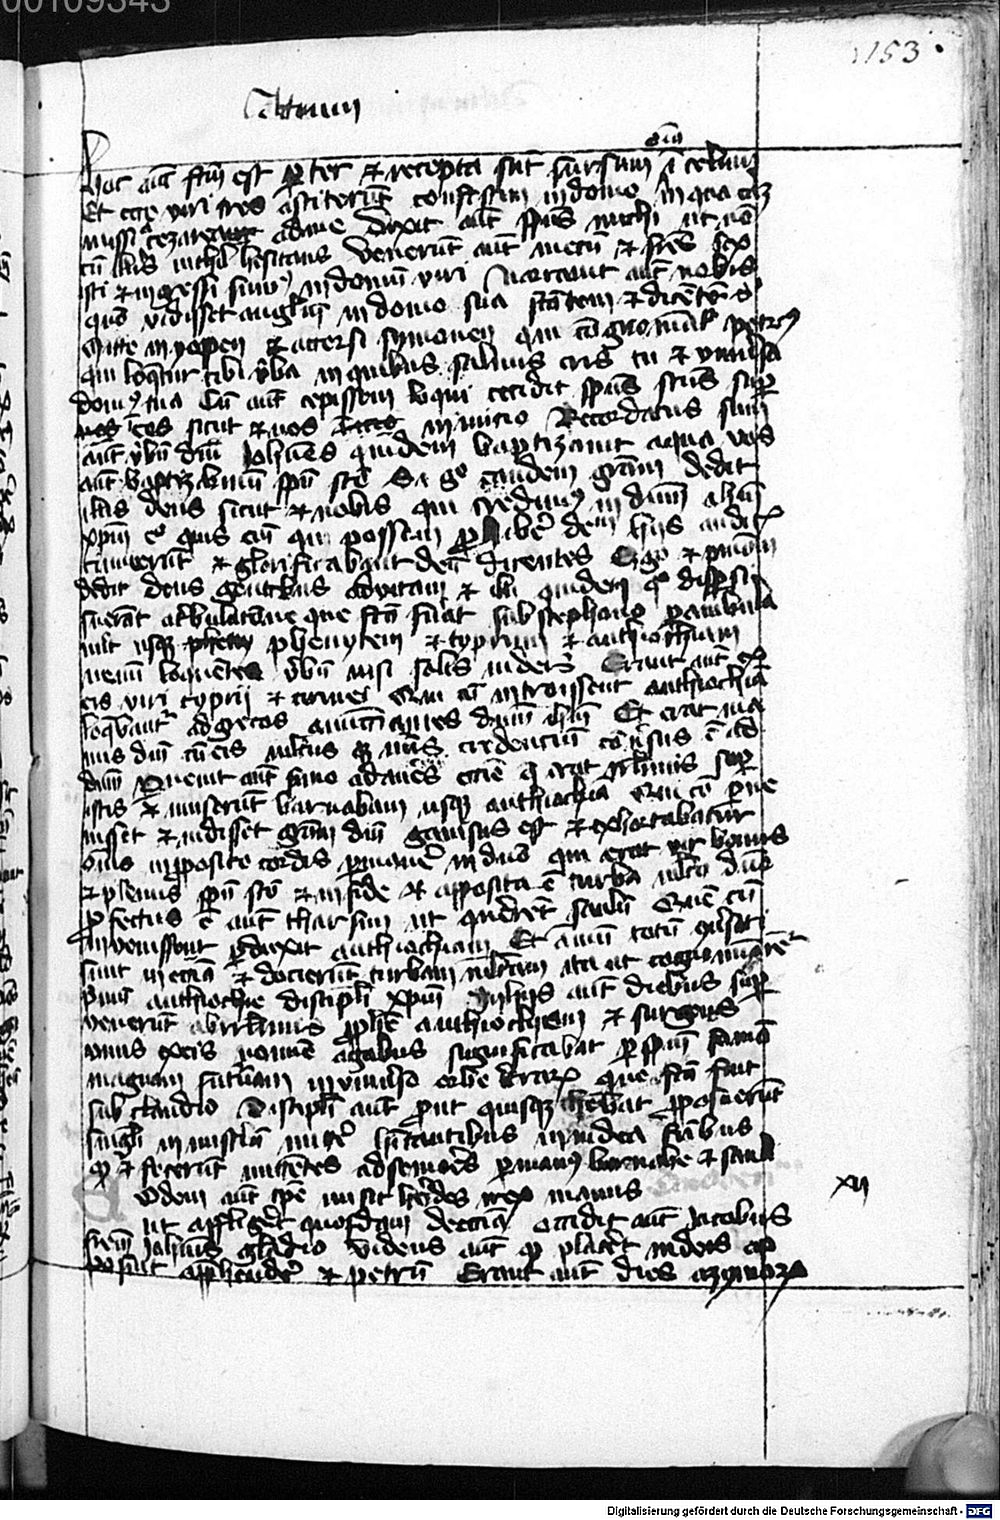 00109343
153
Actuum
Hoc aut fcm est p ter et recepta sut sursum oia i celum
Et ecce viri tres astiterut confestim in domo in qua era
missi a cezarea ad me dixit aut spus michi ut no
cu illis nichil hesitans Venerut aut mecu et fres sex
isti et ingressi sumus in domum viri Narrauit aut nobis
quo vidisset anglum in domo sua stantem et dicente
Mitte in yopen et accersi symonem qui cognomiatr petrus
qui loquetur tibi vba in quibus saluus eris tu et vniusa
domus tua Cu aut cepissem loqui cecidit spus scus sup
eos sicut et nos in inicio Recordatus sum
aut vbu dni Johanes quidem baptizauit aqua vos
aut baptizabimi spu sco Si go eandem gram dedit
illis deus sicut et nobis qui credimus in dnm ihm
xpm ego quis era qui possem phibere deu hiis auditis
tacuerut et glorificabant deu dicentes Ergo et pniam
dedit deus gentibus ad vitam et illi quidem q dispsi
fuerat a tribulatione que fca fuat sub stephano pambula
uit usq phenycem et cyprum et anthiochiam
nemini loquentes vbu nisi solis iudeis Erant aut ex
eis viri cyprii et cirinei Qui cu introissent anthiochia
loqbantr ad grecos annunciantes dnm ihm Et erat ma
nus dni cu eis multus q nus credenciu couersus e ad
dnm Puenit aut smo ad aures eccie q erat irlimis sup
istis et miserut barnabam usq anthiochia Qui cu pue
nisset et vidisset gram dni gauisus est et exhortabatur
oms in pposito cordis pmanere in dno qui erat vir bonus
et plenus spu sco et in fide et apposita e turba mlta dno
pfectus e aut tharsum ut quereret saulu Que cu
inuenissent pduxit anthiochiam Et annu totu ousati
sunt in eccia et docuerut turbam multam ita ut cognoiaret
pmu anthiochie discipuli xpiani In hiis aut diebus sup
venerut ab irlimis pphe anthiochiam et surgens
vnus ex eis nomie agabus significabat p spm famem
magnam futuram in vniuso orbe terrarum que fca fuit
sub claudio Discipuli aut put quisq hebat pposuerut
singuli in ministeriu mittere hitantibus in iudea fribus
qd et fecerut mittentes ad seniores p manus barnabe et sauli
Eodem aut tpe misit herodes rex manus xii
ut affligeret quosdam de eccia occidit aut Jacobum
frem johanis gladio Videns aut q placet iudeis ap
posuit apphendere et petru Erant aut dies azimorum
Digitalisierung gefördert durch die Deutsche Forschungsgemeinschaft - DFG